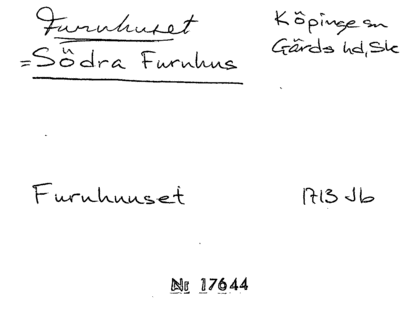 Furuhuset
Köpinge sn
= Södra Furuhus
Gärds hd, Sk
Furuhuuset
1713 Jb
Nr 17644